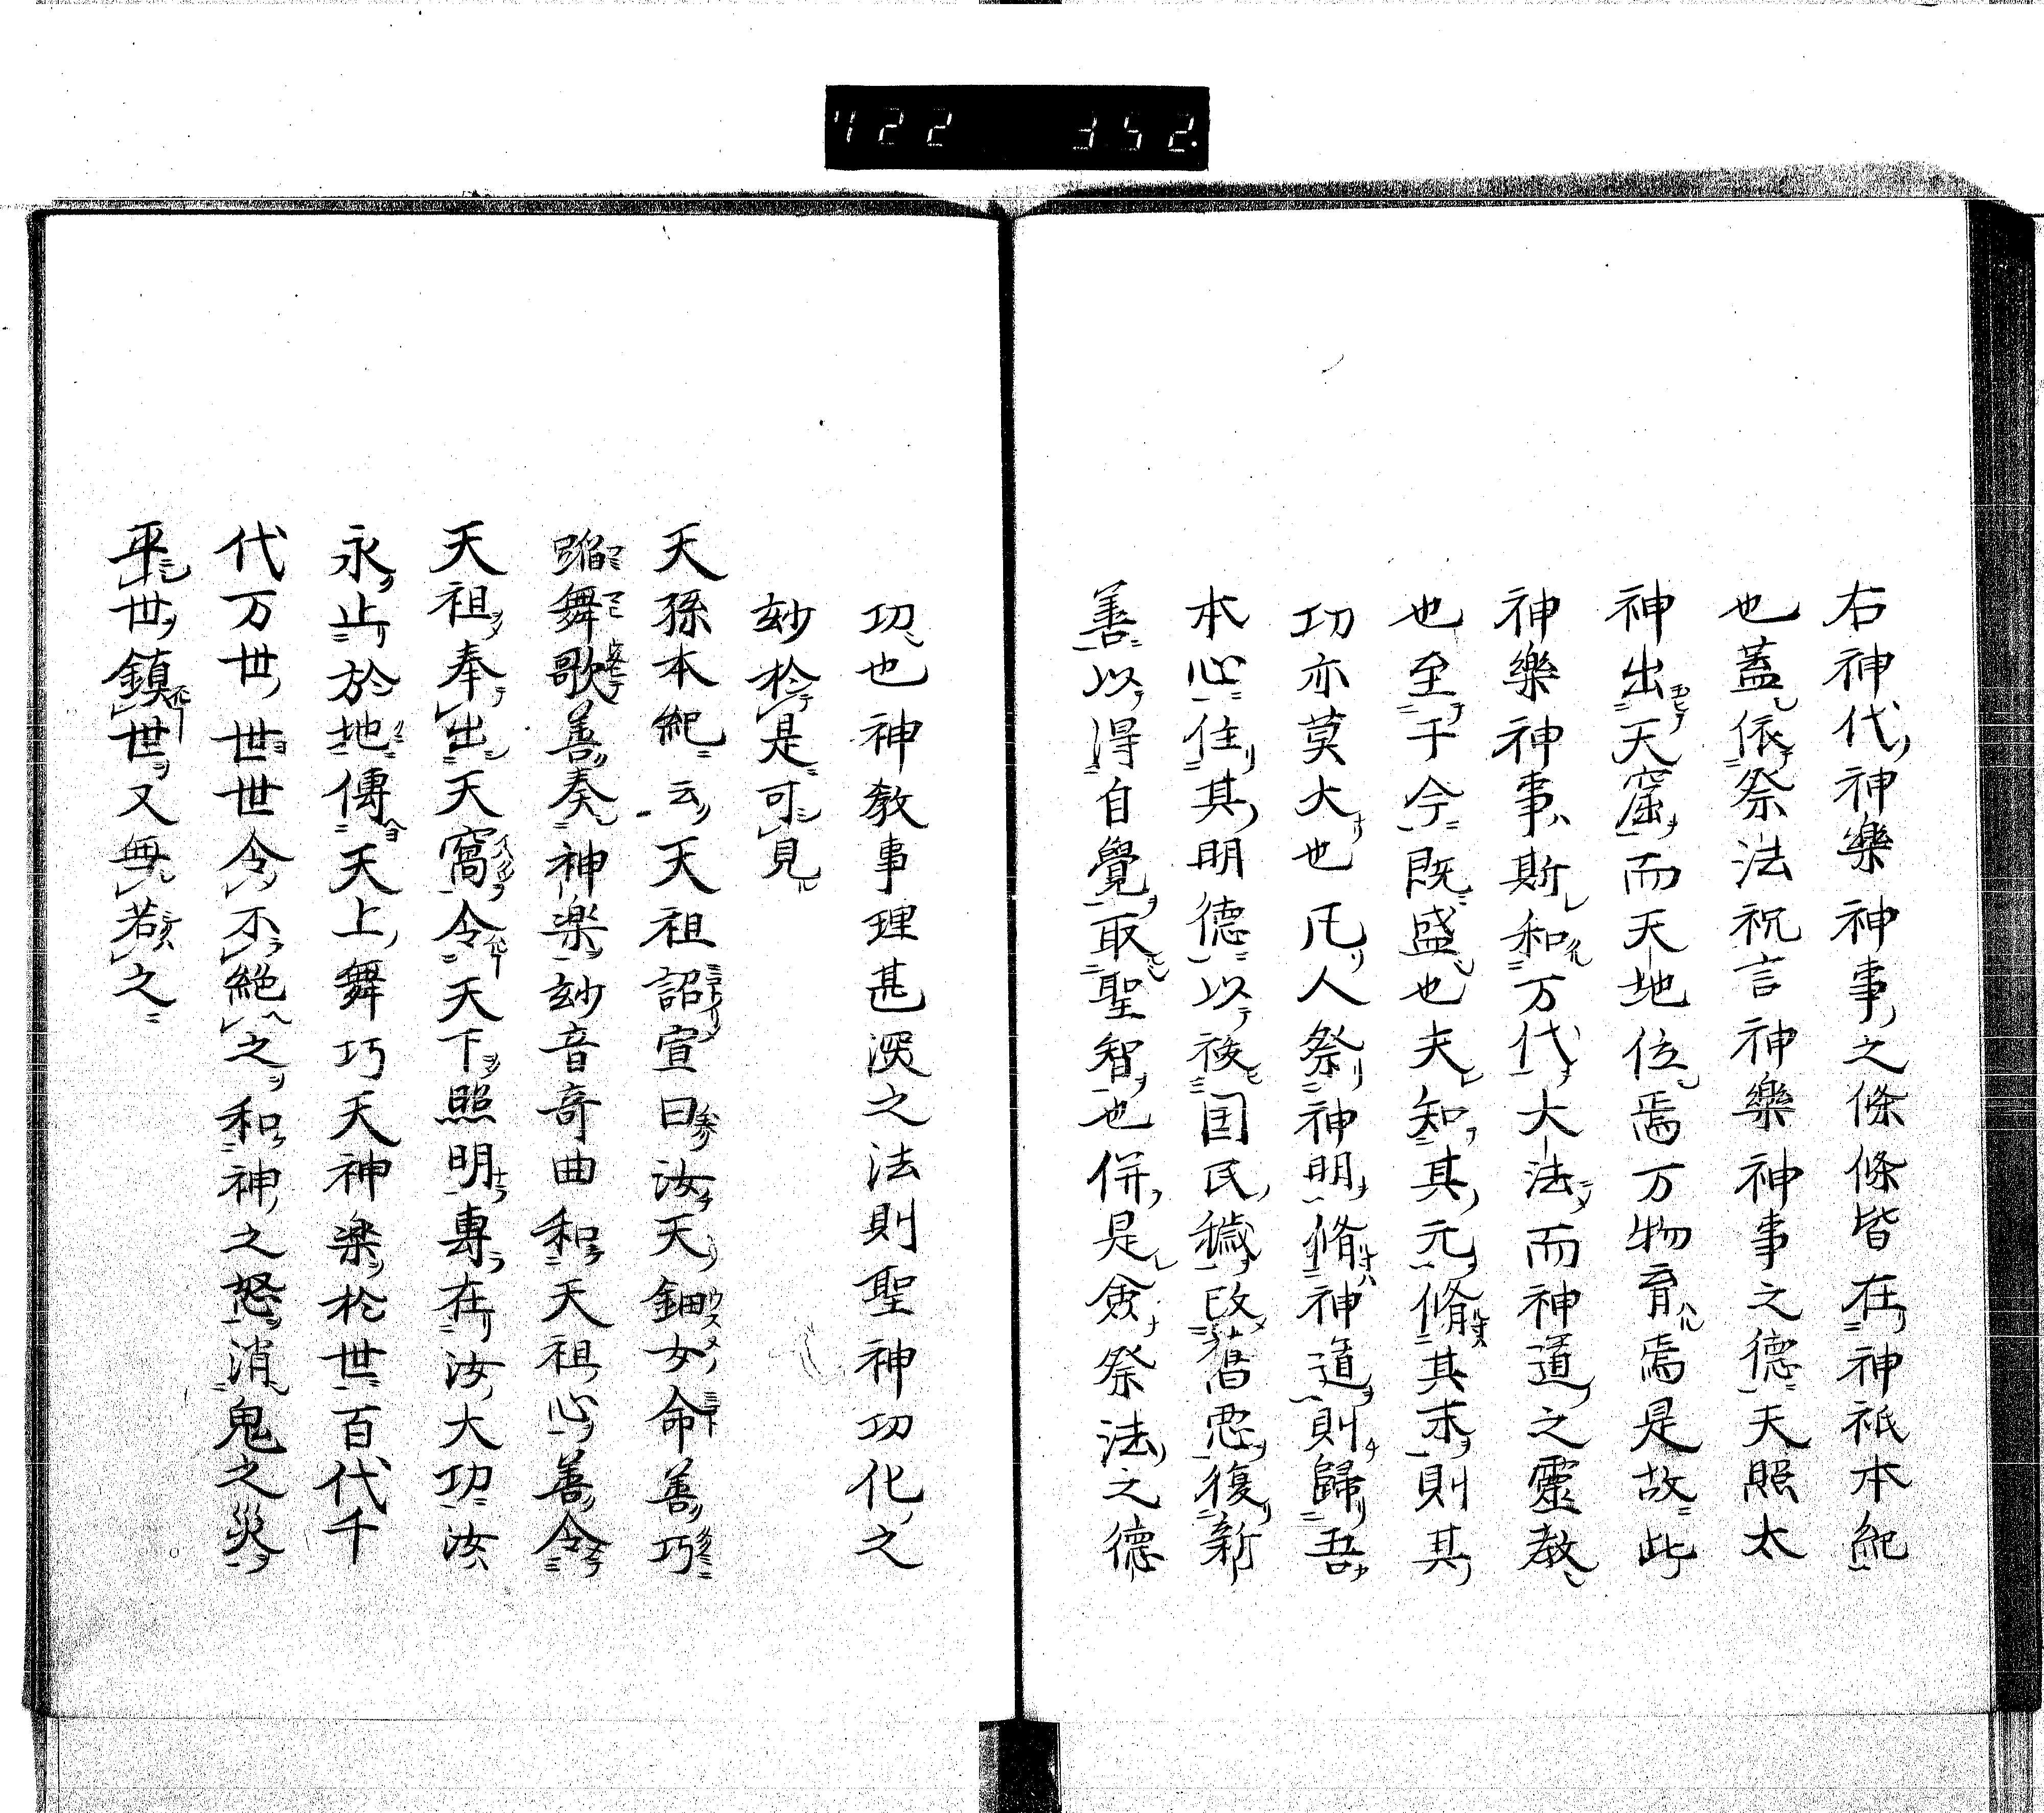 422 352
右神代神樂神事之條條皆在神祇本紀
也蓋依祭法祝言神樂神事之德天照太
神出天窟而天地位焉万物育焉是故此
神樂神事斯和万代大法而神道之靈教
也至于今既盛也夫知其元脩其末則其
功亦莫大也凡人祭神明脩神道則歸吾
本心住其明德以後国民穢改舊惡復新
善以得自覺取聖智也併是僉祭法之德
功也神教事理甚深之法則聖神功化之
玅於是可見
天孫本紀云天祖詔宣曰汝天鈿女命善巧
舞歌善奏神楽玅音奇曲和天祖心善令
天祖奉出天窩令天下照明專在汝大功汝
永止於地傳天上舞巧天神楽於世百代千
代万世世世令不絶之和神之怒消鬼之災
平世鎮世又無若之